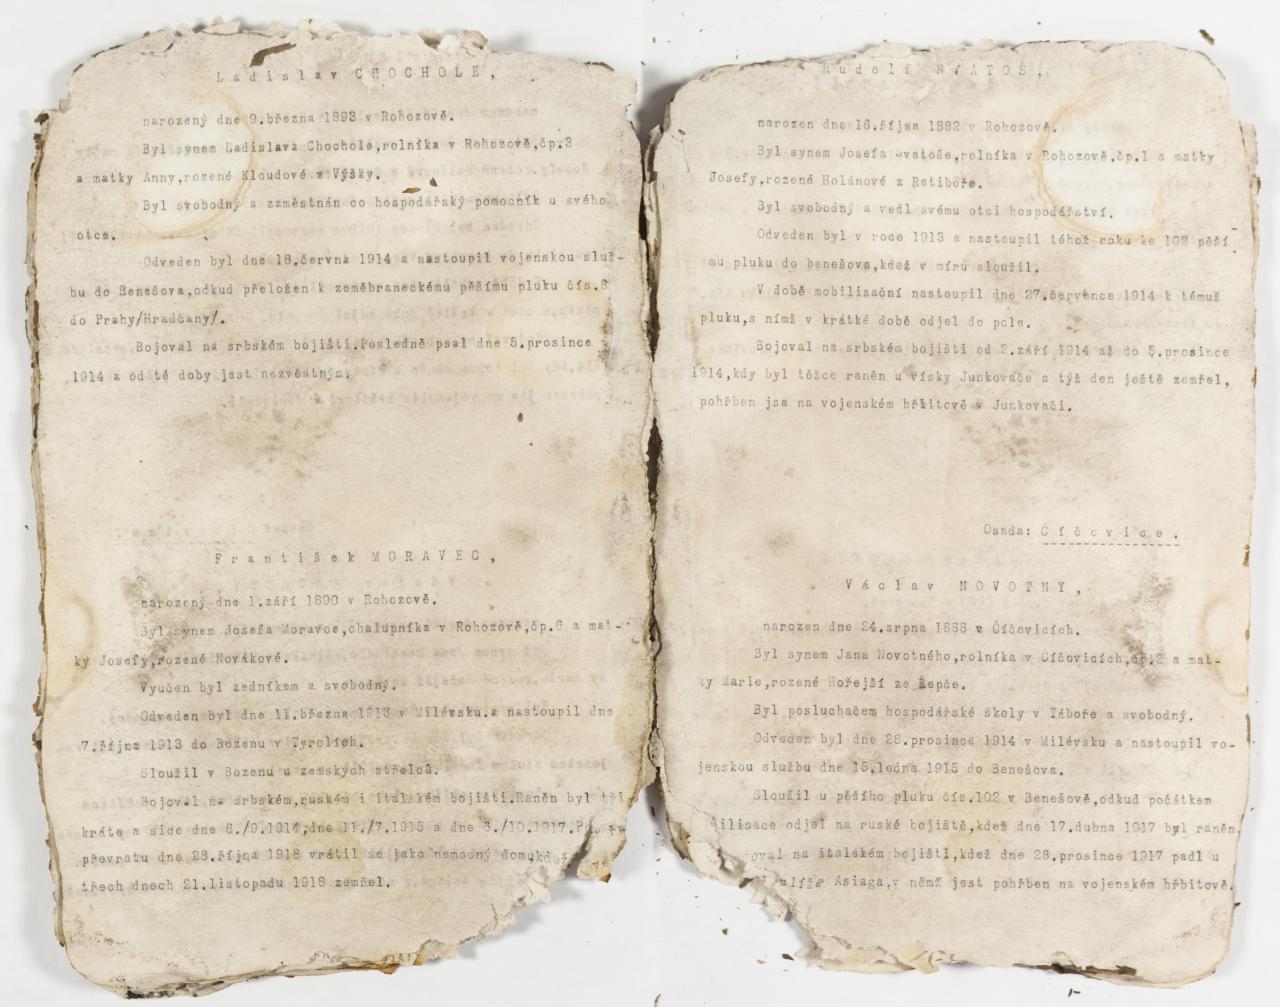 Ladislav CHOCHOLE,
narozený dne 9.března 1893 v Rohozově.
Byl synem Ladislava Chochole,rolníka v Rohozově,čp.3
a matky Anny,rozené Kloudové z Výšky.
Byl svobodný a zaměstnán co hospodářský pomocník u svého
otce.
Odveden byl dne 18.června 1914 a nastoupil vojenskou služ-
bu do Benešova,odkud přeložen k zeměbraneckému pěšímu pluku čís.8
do Prahy/Hradčany/.
Bojoval na srbském bojišti.Posledně psal dne 5.prosince
1914 a od té doby jest nezvěstným.
František MORAVEC,
narozený dne 1.září 1890 v Rohozově.
Byl synem Josefa Moravce,chalupníka v Rohozově,čp.6 a mat-
ky Josefy,rozené Novákové.
Vyučen byl zedníkem a svobodný.
Odveden byl dne 11.března 1913 v Milévsku.a nastoupil dne
7.října 1913 do Bozenu v Tyrolích.
Sloužil v Bozenu u zemských střelců.
Bojoval na srbském,ruském i italském bojišti.Raněn byl tři
kráte a sice dne 8./9.1914,dne 11./7.1915 a dne 6./10.1917.
převratu dne 28.října 1918 vrátil se jako nemocný domu
třech dnech 21.listopadu 1918 zemřel.
Rudolf SVATOŠ,
narozen dne 16.října 1882 v Rohozově.
Byl synem Josefa Svatoše,rolníka v Rohozově,čp.1 a matky
Josefy,rozené Holánové z Ratiboře.
Byl svobodný a vedl svému otci hospodářství.
Odveden byl v roce 1913 a nastoupil téhož roku ke 102 pěší
mu pluku do benešova,kdež v míru sloužil.
V době mobilisační nastoupil dne 27.července 1914 k témuž
pluku,s nímž v krátké době odjel do pole.
Bojoval na srbském bojišti od 2.září 1914 až do 5.prosince
1914,kdy byl těžce raněn u vísky Junkovače a týž den ještě zemřel,
pohřben jsa na vojenském hřbitově v Junkovači.
Osada: Číčovice.
Václav NOVOTNY,
narozen dne 24.srpna 1888 v Číčovicích.
Byl synem Jana Novotného,rolníka v Číčovicích,čp.2 a mat-
ky Marie,rozené Hořejší ze Řepče.
Byl posluchačem hospodářské školy v Táboře a svobodný.
Odveden byl dne 28.prosince 1914 v Milévsku a nastoupil vo-
jenskou službu dne 15.ledna 1915 do Benešova.
Sloužil u pěšího pluku čís.102 v Benešově,odkud počátkem
odjel na ruské bojiště,kdež dne 17.dubna 1917 byl raněn,
na italském bojišti,kdež dne 28.prosince 1917 padl u
Asiaga,v němž jest pohřben na vojenském hřbitově.